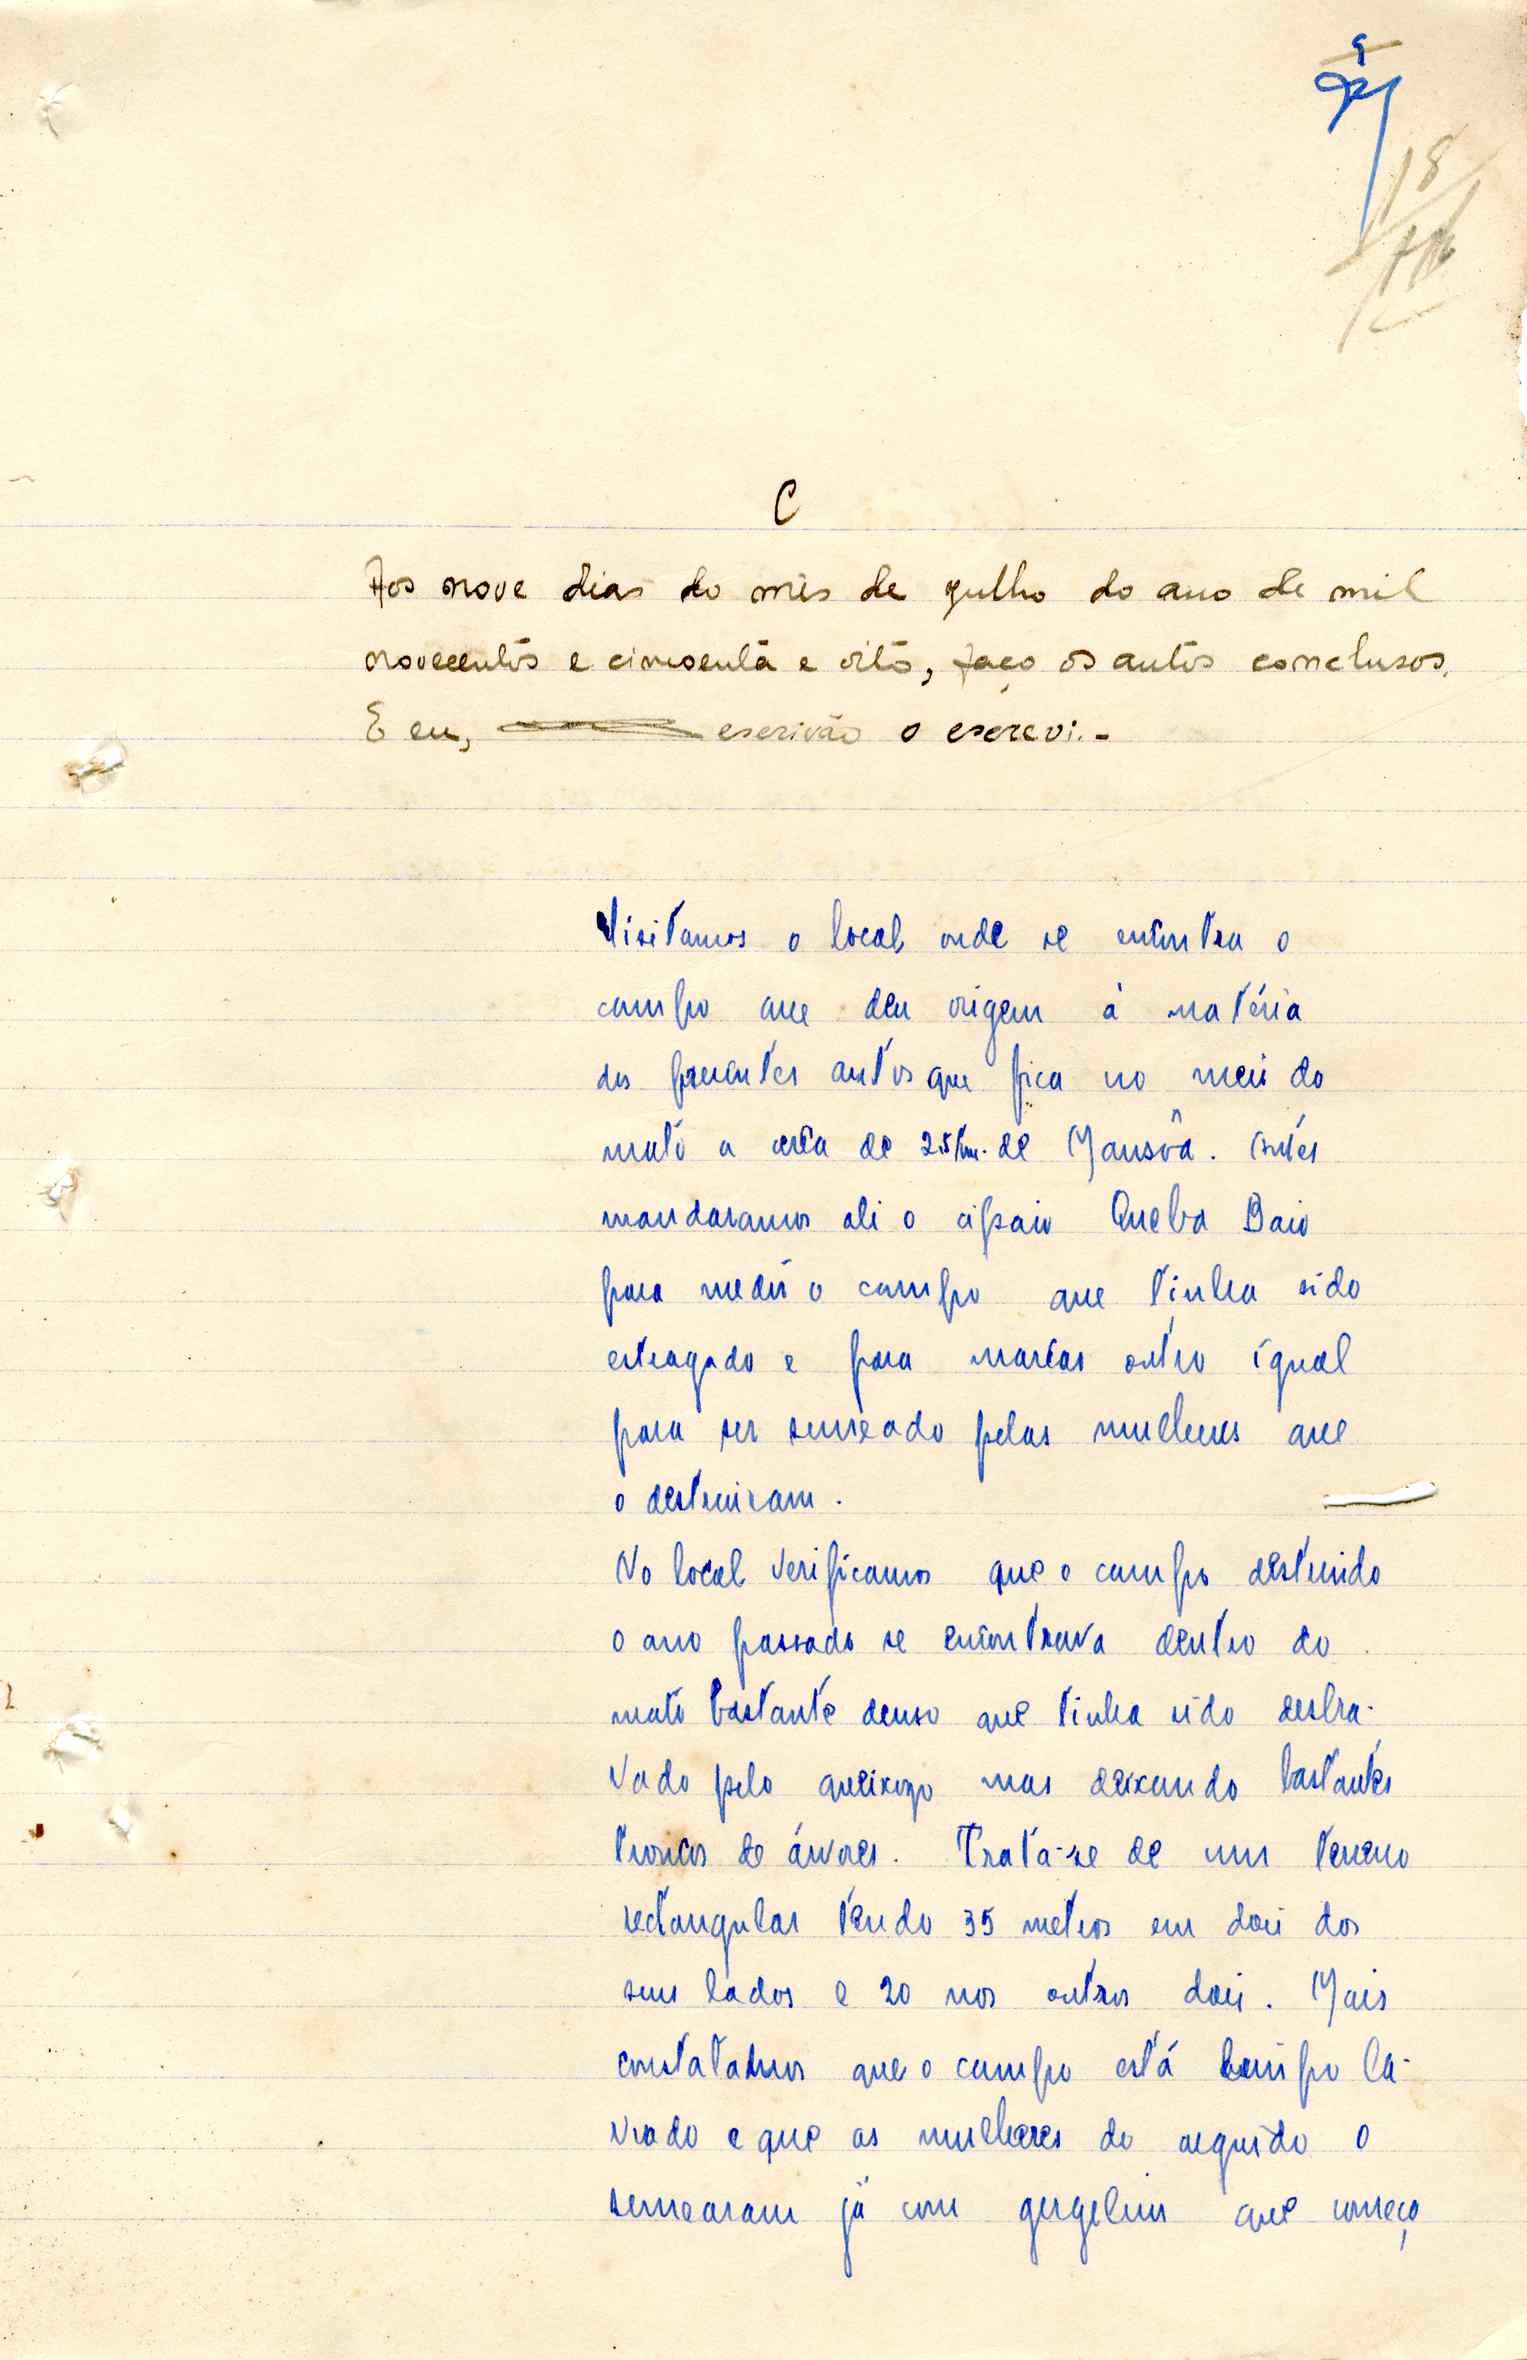 9
18
C
Aos nove dias do mês de Julho do ano de mil
novecentos e cincoenta e oito, faço os autos conclusos.
E eu, escrivão o escrevi.-
Visitamos o local onde se encontra o
campo que deu origem à matéria
dos presentes autos que fica no meio do
mato a cerca de 25 km. de Mansôa. Antes
mandaramos ali o cipaio Queba Baio
para medir o campo que tinha sido
estragado e para marcar outro igual
para ser semeado pelas mulheres que
o destruiram.
No local verificamos que o campo destruido
o ano passado se encontrava dentro do
mato bastante denso que tinha sido desbra-
vado pelo queixozo mas deixando bastantes
troncos de árvores. Trata-se de um terreno
rectangular tendo 35 metros em dois dos
seus lados e 20 nos outros dois. Mais
constatamos que o campo está limpo la-
vrado e que as mulheres do arguido o
semearam já com gergelim que começa